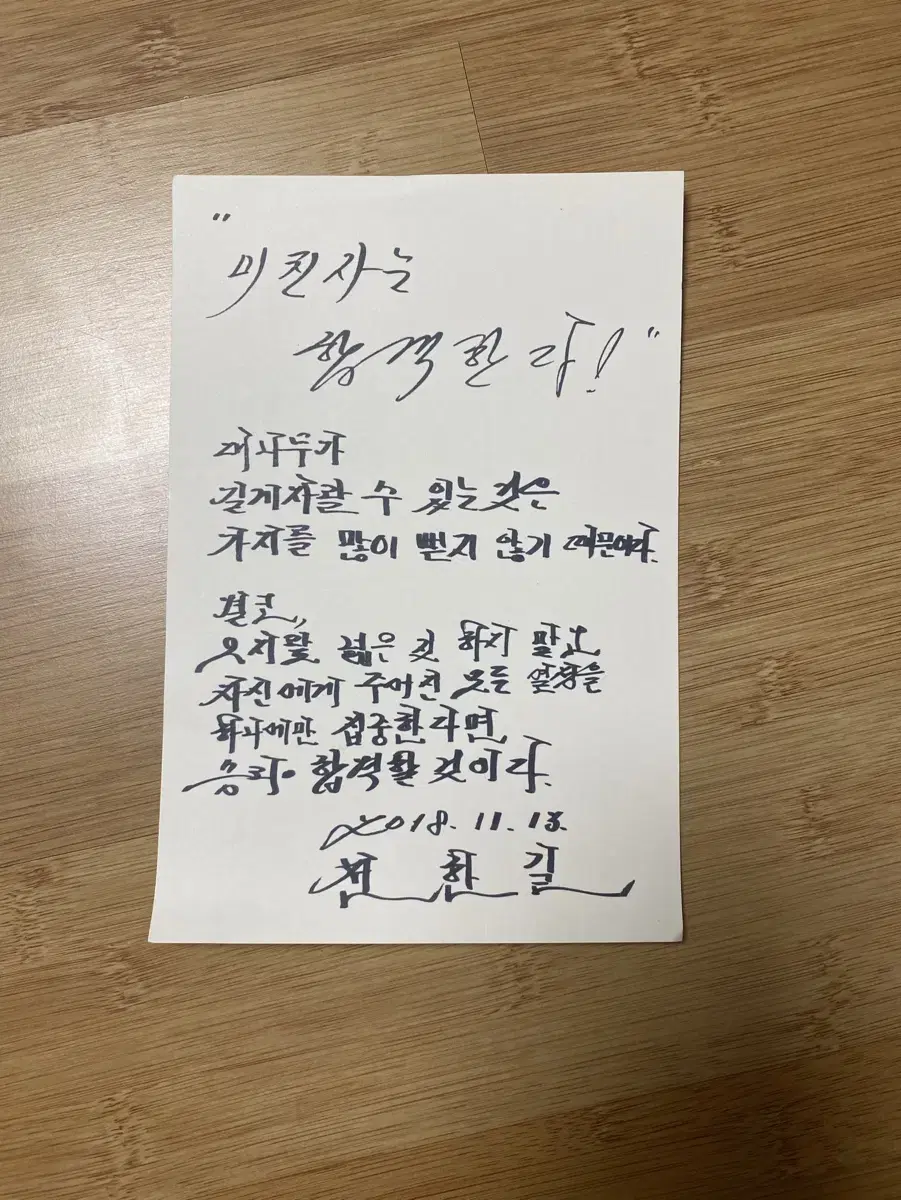 "미친자는
합격한다!"
대나무가
길게자랄 수 있는것은
가지를 많이 뻗지 않기 때문이다.
결코,,
오지랖 넓은 짓 하지 말고
자신에게 주어진 모든 열정을
하나에만 집중한다면,
승리· 합격할 것이다.
2018. 11. 13.
전 한 길